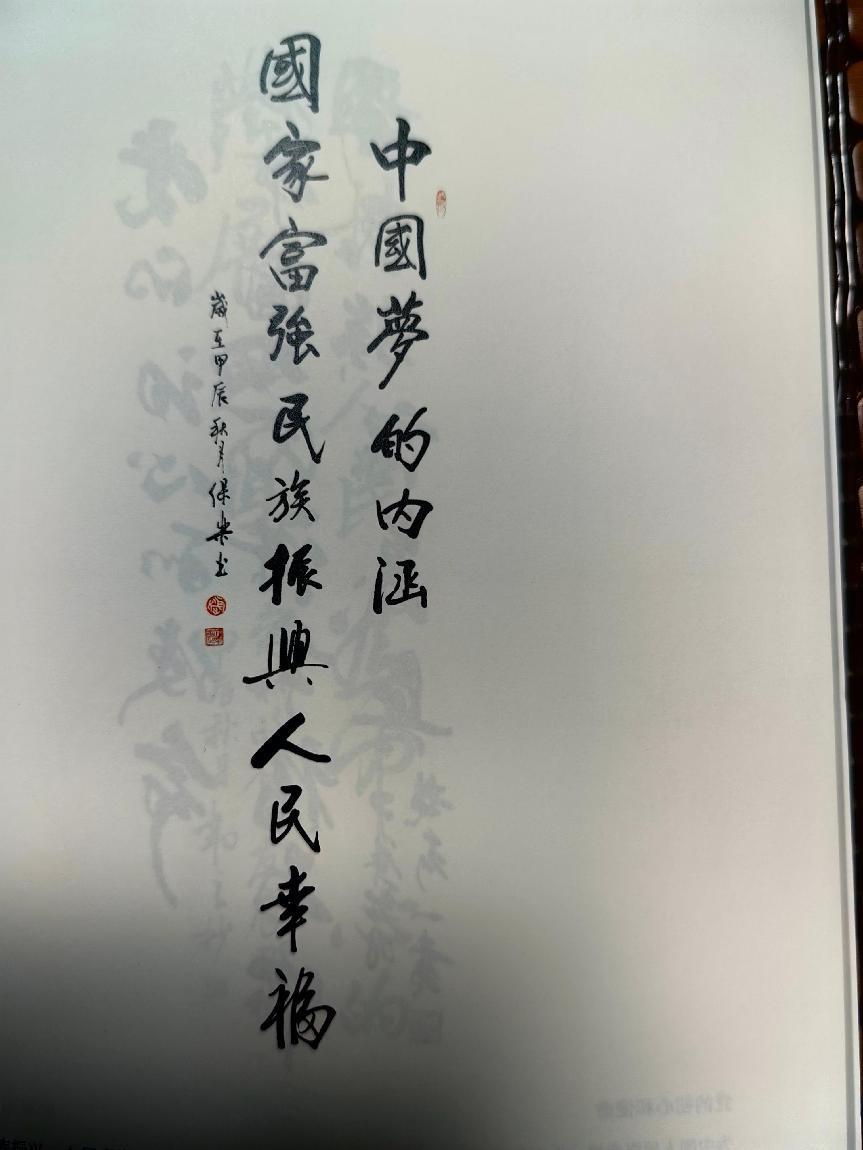 中國夢的内涵
國家富強民族振興人民幸福
歲在甲辰秋月保樂书